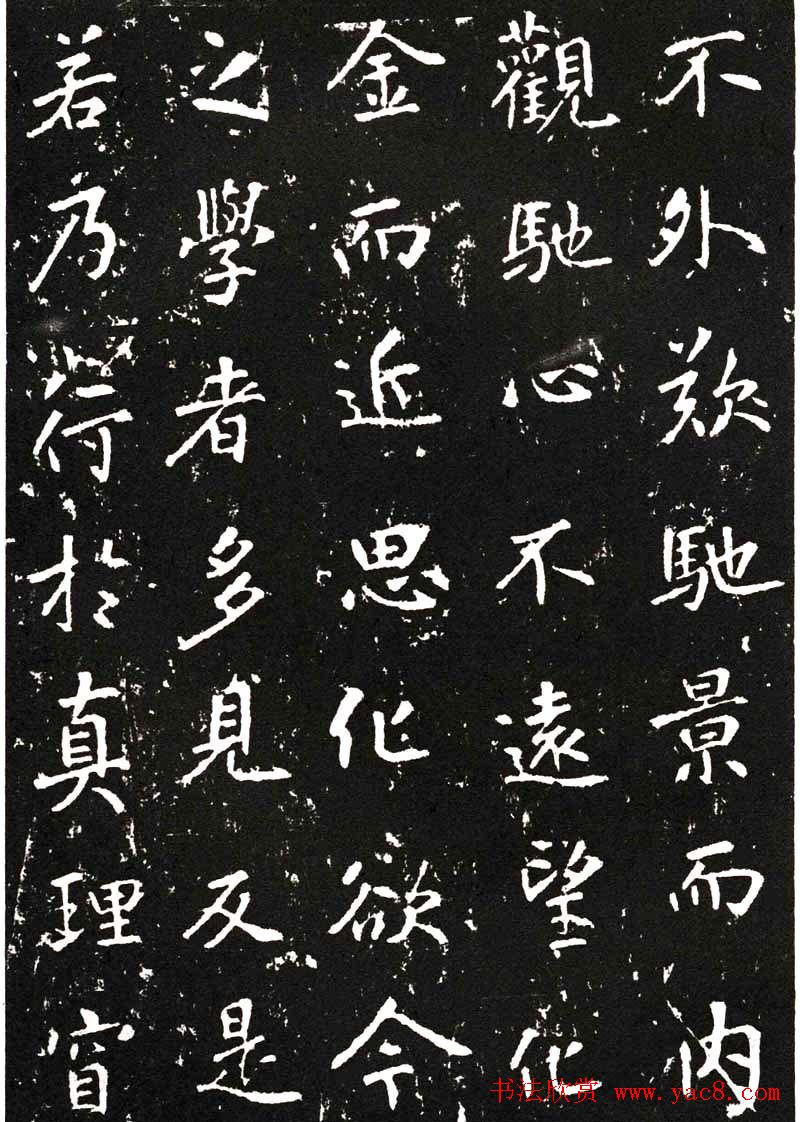 不外欻馳景而内
觀馳心不遠望化
金而近思化欲今
之學者多見反是
若乃於真理窅
书法欣赏 www.yac8.com